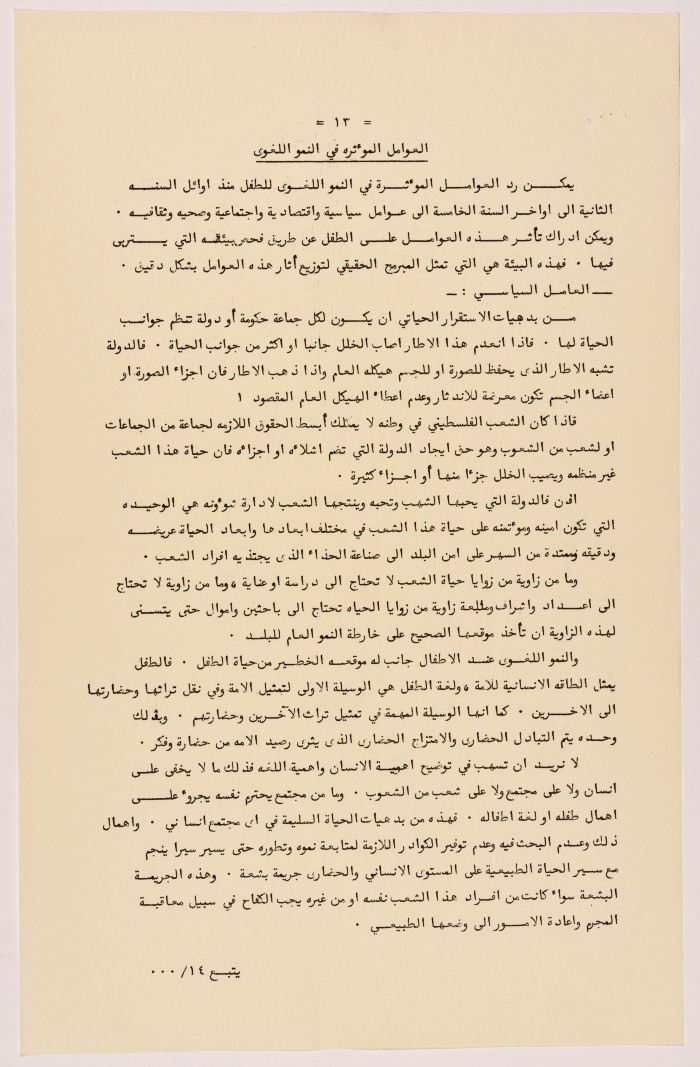 = ١٣ =
العوامل الموءثره في النمو اللغوى
يمكن رد العوامل الموءثرة في النمو اللغوى للطفل منذ اوائل السنه
الثانية الى اواخر السنة الخامسة الى عوامل سياسية واقتصادية واجتماعية وصحيه وثقافيه ٠
ويمكن ادراك تأثر هذه العوامل على الطفل عن طريق فحص بيئته التي يتربى
فيها ٠ فهذه البيئة هي التي تمثل المبرمج الحقيقي لتوزيع أثار هذه العوامل بشكل دقيق ٠
ـ العامل السياسي : ـ
من بدهيات الاستقرار الحياتي ان يكون لكل جماعة حكومة أو دولة تنظم جوانب
الحياة لها ٠ فاذا انعدم هذا الاطار اصاب الخلل جانبا او اكثر من جوانب الحياة ٠ فالدولة
تشبه الاطار الذى يحفظ للصورة او للجسم هيكله العام واذا ذهب الاطار فان اجزاء الصورة او
اعضاء الجسم تكون معرضة للاندثار وعدم اعطاء الهيكل العام المقصود !
فاذا كان الشعب الفلسطيني في وطنه لا يمتلك أبسط الحقوق اللازمه لجماعة من الجماعات
او لشعب من الشعوب وهو حق ايجاد الدولة التي تضم اشلاءه او اجزاءه فان حياة هذا الشعب
غير منظمه ويصيب الخلل جزءا منها أو اجزاء كثيرة ٠
اذن فالدولة التي يحبها الشهب وتحبه وينتجها الشعب لادارة شوءونه هي الوحيده
التي تكون امينه وموءتمنه على حياة هذا الشعب في مختلف ابعادها وابعاد الحياة عريضه
ودقيقه وممتدة من السهر على امن البلد الى صناعة الحذاء الذى يحتذيه افراد الشعب ٠
وما من زاوية من زوايا حياة الشعب لا تحتاج الى دراسة او عناية ، وما من زاوية لا تحتاج
الى اعداد واشراف ومتابعة زاوية من زوايا الحياه تحتاج الى باحثين واموال حتى يتسنى
لهذه الزاوية ان تأخذ موقعها الصحيح على خارطة النمو العام للبلد ٠
والنمو اللغوى عند الاطفال جانب له موقعه الخطير من حياة الطفل ٠ فالطفل
يمثل الطاقه الانسانية للامة ، ولغة الطفل هي الوسيلة الاولى لتمثيل الامة وفي نقل تراثها وحضارتها
الى الاخرين ٠ كما انها الوسيلة المهمة في تمثيل تراث الآخرين وحضارتهم ٠ وبذلك
وحده يتم التبادل الحضارى والامتزاج الحضارى الذى يثرى رصيد الامه من حضارة وفكر ٠
لا نريد ان نسهب في توضيح اهمية الانسان واهمية اللغه فذلك ما لا يخفى على
انسان ولا على مجتمع ولا على شعب من الشعوب ٠ وما من مجتمع يحترم نفسه يجروء على
اهمال طفله او لغة اطفاله ٠ فهذه من بدهيات الحياة السليمة في اى مجتمع انساني ٠ واهمال
ذلك وعدم البحث فيه وعدم توفير الكوادر اللازمة لمتابعة نموه وتطوره حتى يسير سيرا ينجم
مع سير الحياة الطبيعية على المستوى الانساني والحضارى جريمة بشعة ٠ وهذه الجريمة
البشعة سواء كانت من افراد هذا الشعب نفسه او من غيره يجب الكفاح في سبيل معاقبة
المجرم واعادة الامور الى وضعها الطبيعي ٠
يتبع ١٤/ ٠٠٠